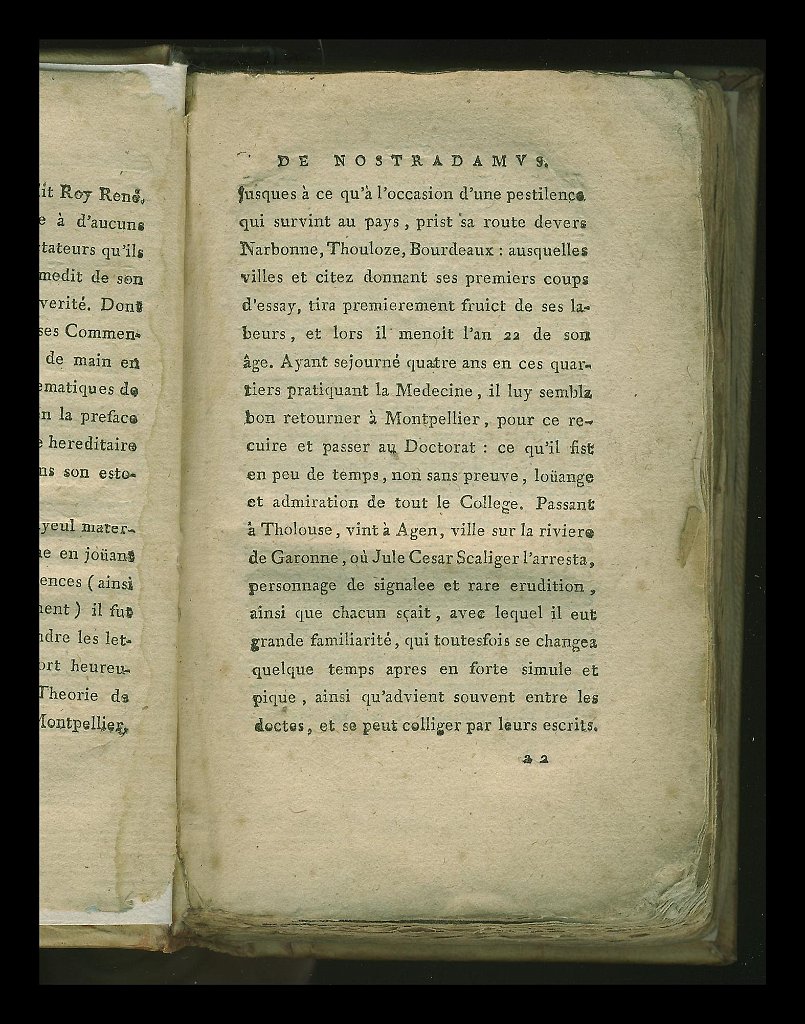 it Roy René,
e à d'aucuns
tateurs qu'ils
medit de son
verité. Dont
ses Commen-
de main en
ematiques de
n la preface
e hereditaire
ns son esto-
yeul mater-
ne en joüant
ences (ainsi
ment) il fut
ndre les let-
ort heureu-
Theorie de
Montpellier,
DE NOSTRADAMVS.
jusques à ce qu'à l'occasion d'une pestilence
qui survint au pays, prist sa route devers
Narbonne, Thouloze, Bourdeaux : ausquelles
villes et citez donnant ses premiers coups
d'essay, tira premierement fruict de ses la-
beurs, et lors il menoit l'an 22 de son
âge. Ayant sejourné quatre ans en ces quar-
tiers pratiquant la Medecine, il luy sembla
bon retourner à Montpellier, pour ce re-
cuire et passer au Doctorat : ce qu'il fist
en peu de temps, non sans preuve, loüange
et admiration de tout le College. Passant
à Tholouse, vint à Agen, ville sur la riviere
de Garonne, où Jule Cesar Scaliger l'arresta,
personnage de signalee et rare erudition,
ainsi que chacun sçait, avec lequel il eut
grande familiarité, qui toutesfois se changea
quelque temps apres en forte simule et
pique, ainsi qu'advient souvent entre les
doctes, et se peut colliger par leurs escrits.
a 2